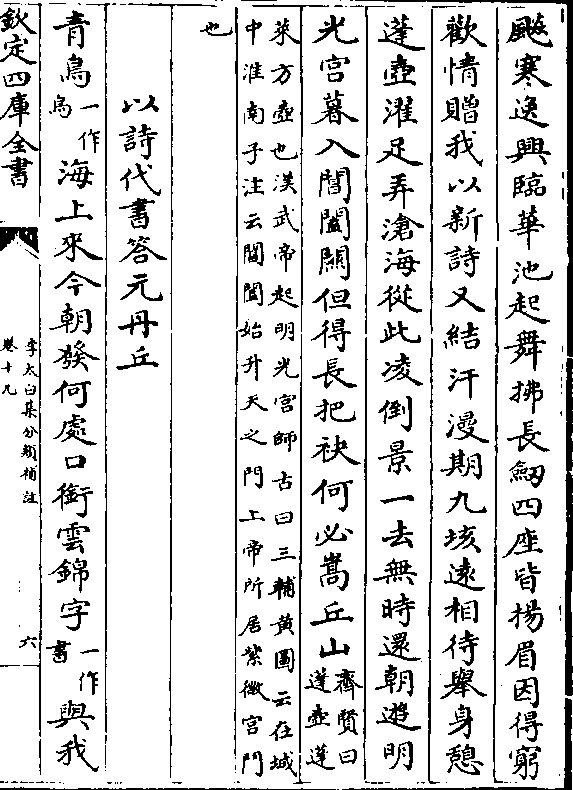 颷寒逸興臨華池起舞拂長劒四座皆揚眉因得窮
歡情贈我以新詩又結汗漫期九垓遠相待舉身憩
蓬壺濯足弄滄海從此凌倒景一去無時還朝遊明
光宮暮入閶闔關但得長把袂何必嵩丘山齊賢曰
蓬壺蓬
萊方壺也漢武帝起明光宮師古曰三輔黃圖云在城
中淮南子注云閶闔始升天之門上帝所居紫微宮門
也
以詩代書答元丹丘
青鳥一作
鳥海上來今朝發何處口銜雲錦字一作
書與我
欽定四庫全書
李太白集分類補註
卷十九
六